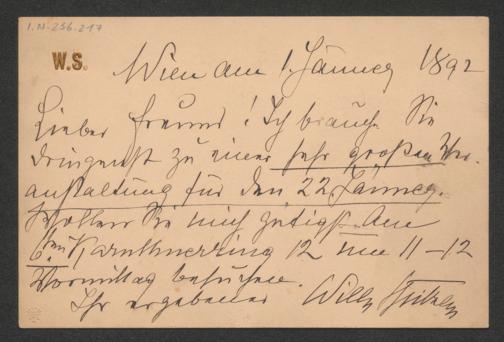 I.N-256.217
W.S.
Wien am 1. Jänner 1892
Lieber Freund! Ich brauche Sie
dringendst zu einer sehr großen Ver-
anstaltung für den 22 Jänner.
Wollen Sie mich gütigst am
6ten Kärnthnerring 12 um 11–12
Vormittag besuchen.
Ihr ergebener Willy